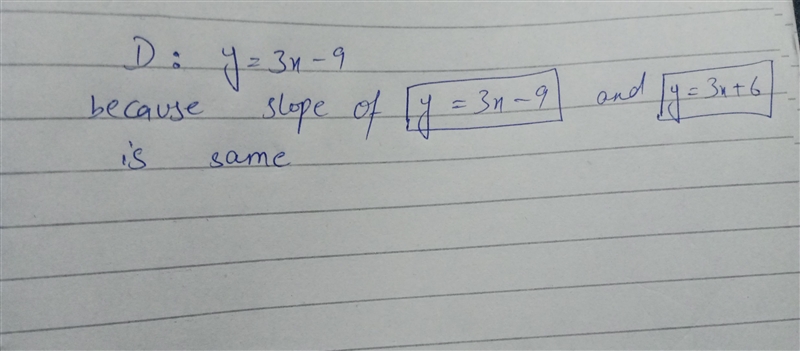 D: y = 3x - 9
because slope of y = 3x - 9 and y = 3x + 6
is same